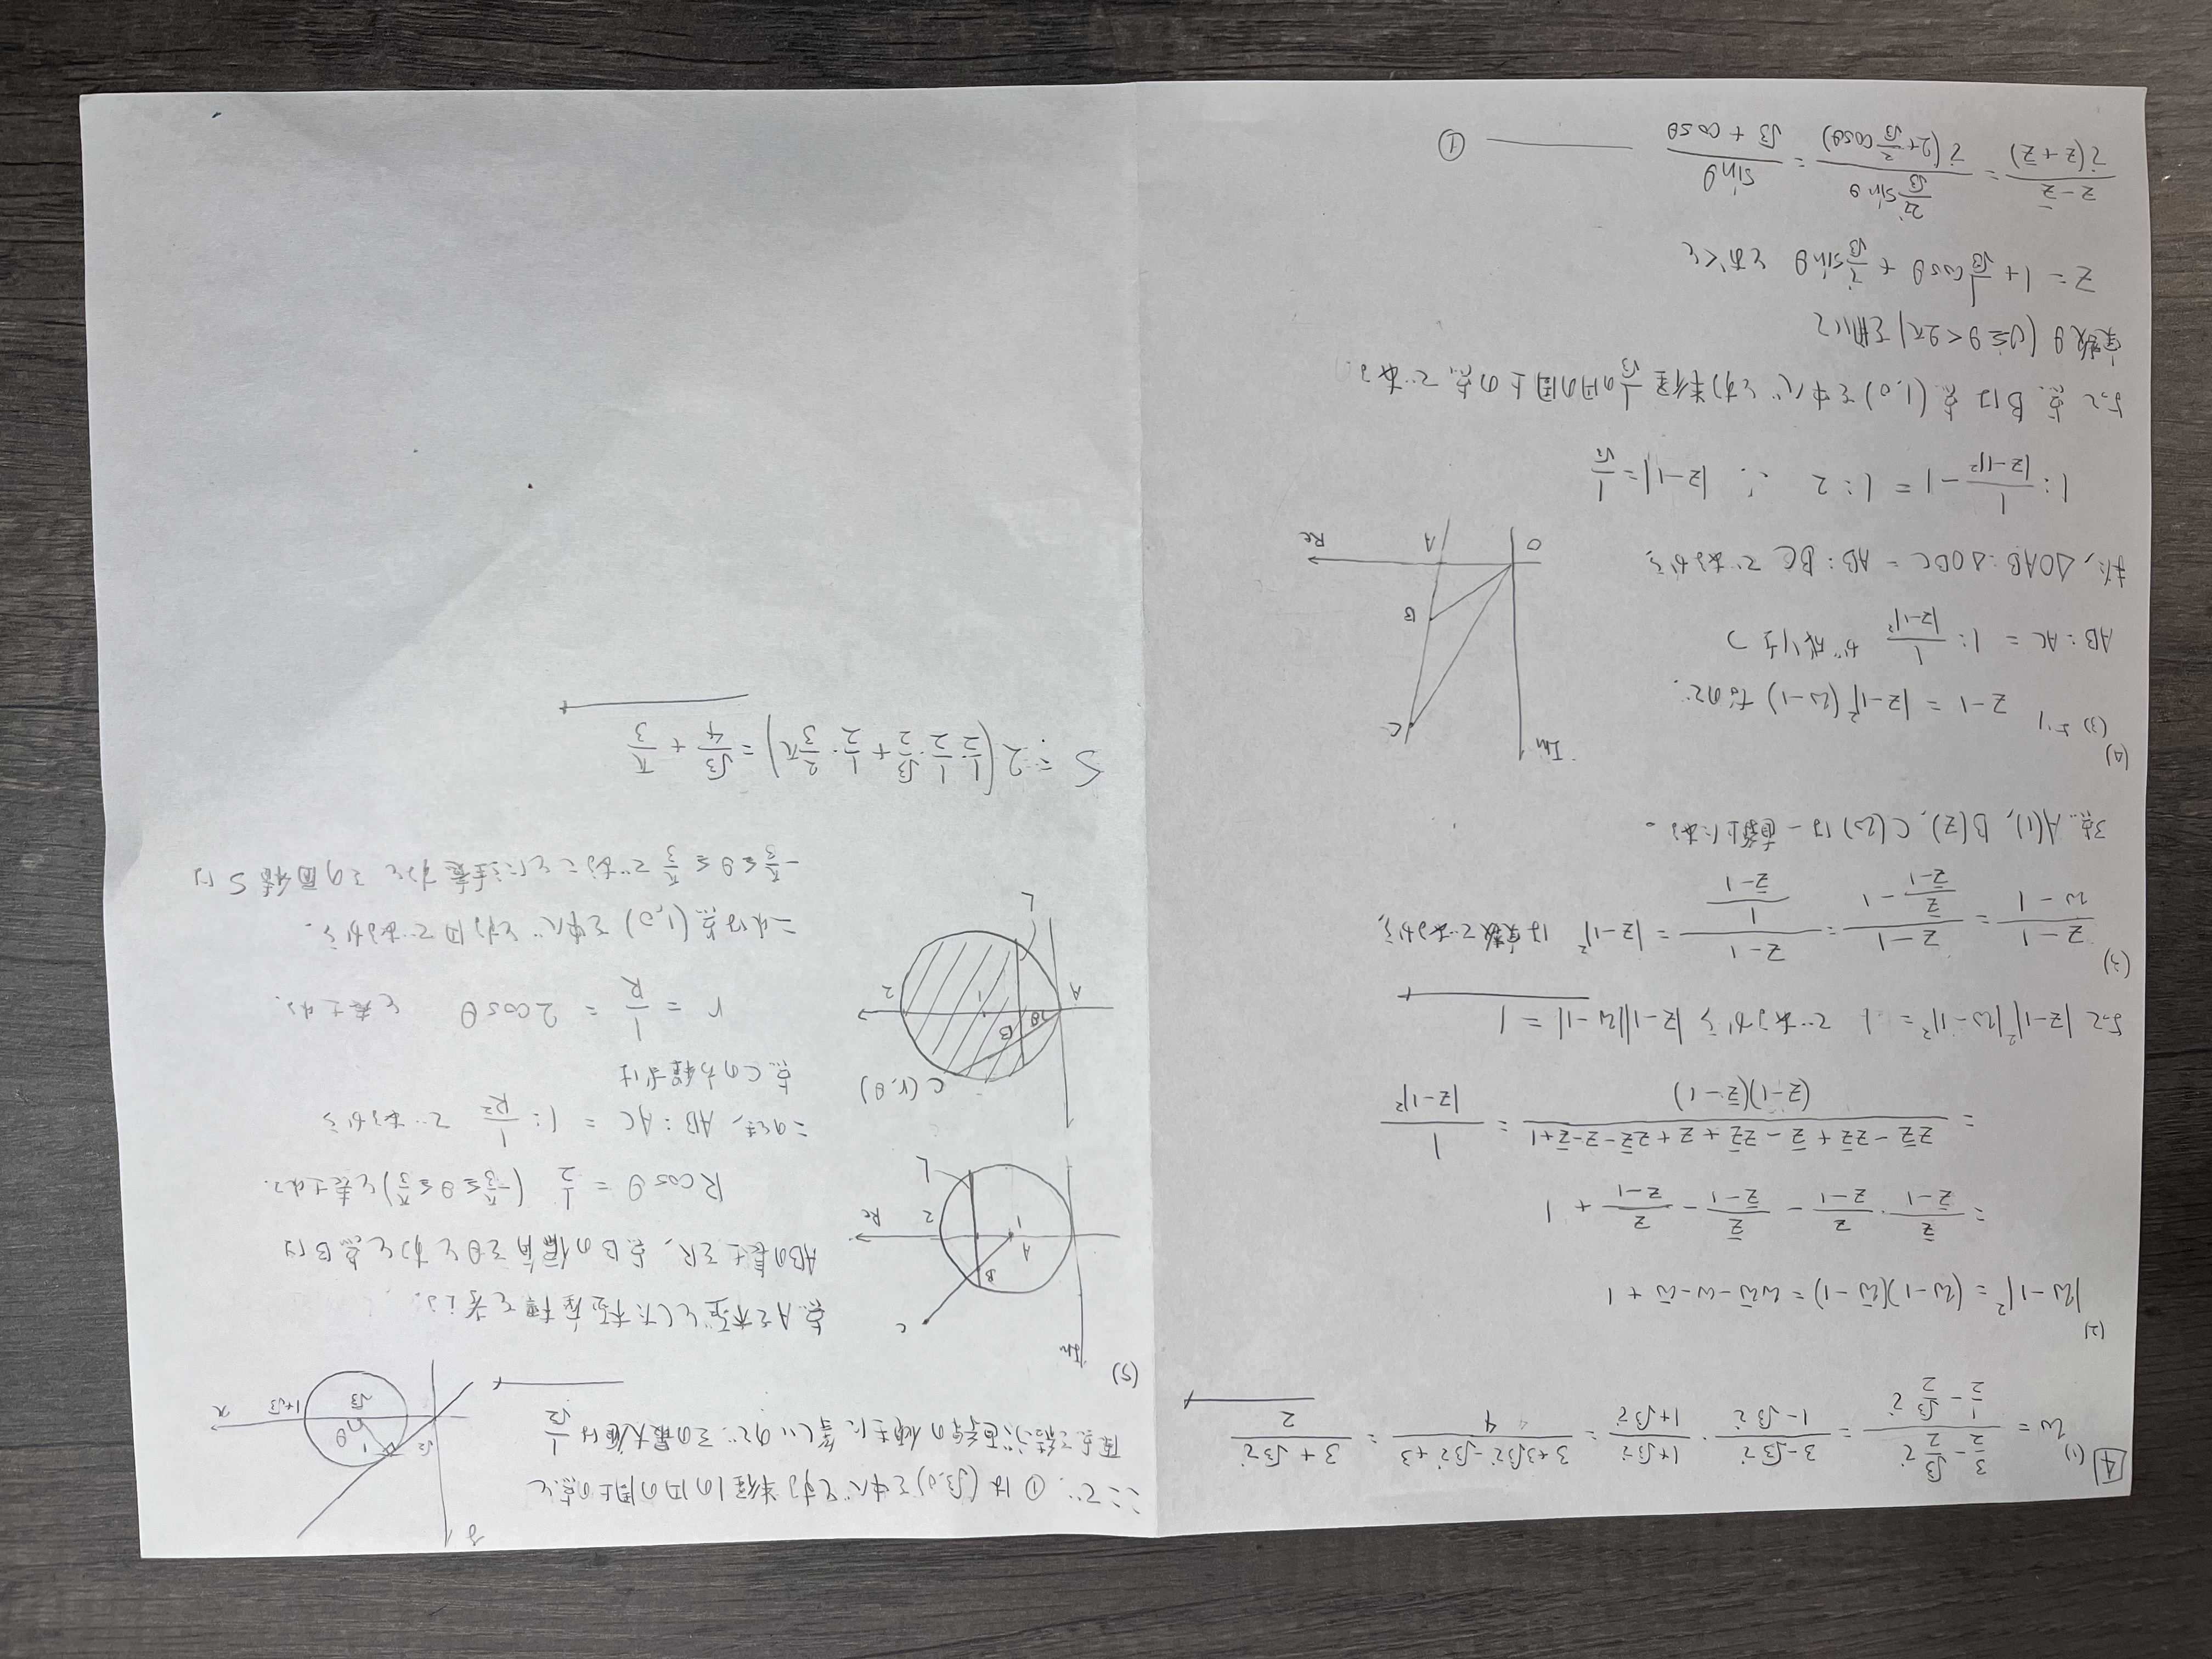 4
(1)
w = (3/2 - √3/2 i)/(1/2 - √3/2 i) = (3-√3i)/(1-√3i) · (1+√3i)/(1+√3i) = (3+3√3i-√3i+3)/4 = (3+√3i)/2
(2)
|w-1|² = (w-1)(w̄-1) = ww̄-w-w̄+1
= z̄/(z̄-1) · z/(z-1) - z̄/(z̄-1) - z/(z-1) + 1
= (zz̄-zz̄+z̄-zz̄+z+zz̄-z-z̄+1)/((z-1)(z̄-1)) = 1/|z-1|²
よって |z-1|²|w-1|² = 1 であるから |z-1||w-1| = 1
(3)
(z-1)/(w-1) = (z-1)/(z̄/(z̄-1) - 1) = (z-1)/(1/(z̄-1)) = |z-1|² は実数であるから
3点 A(1), B(z), C(w) は一直線上にある。
(4)
(3)より z-1 = |z-1|²(w-1) なので
AB:AC = 1:1/|z-1|² が成り立つ
また, △OAB:△OBC = AB:BC であるから
Im
C
B
O
A
Re
1:1/|z-1|² - 1 = 1:2 ∴ |z-1| = 1/√3
よって 点Bは 点(1,0)を中心とする半径1/√3の円の周上の点である
実数θ (0≦θ<2π)を用いて
z = 1 + 1/√3 cosθ + i/√3 sinθ とおくと
(z-z̄)/(i(z+z̄)) = (2i/√3 sinθ)/(i(2+2/√3 cosθ)) = sinθ/(√3+cosθ) ①
ここで ① は (√3,0)を中心とする半径1の円の周上の点と
原点を結ぶ直線の傾きに等しいので その最大値は 1/√2
y
√2
1
θ
√3
1+√3
x
(5)
Im
C
B
A
1
2
Re
L
点Aを極とした極座標を考える.
ABの長さをR, 点Bの偏角をθとすると 点Bは
Rcosθ = 1/2 (-π/3≦θ≦π/3) と表せる.
このとき, AB:AC = 1:1/R² であるから
点Cの方程式は
r = 1/R = 2cosθ と表せる.
C(r,θ)
B
θ
A
1
2
L
これは点(1,0)を中心とする円であるから.
-π/3≦θ≦π/3 であることに注意すると その面積Sは
S = 2(1/2·1/2·√3/2 + 1/2·2/3π) = √3/4 + π/3